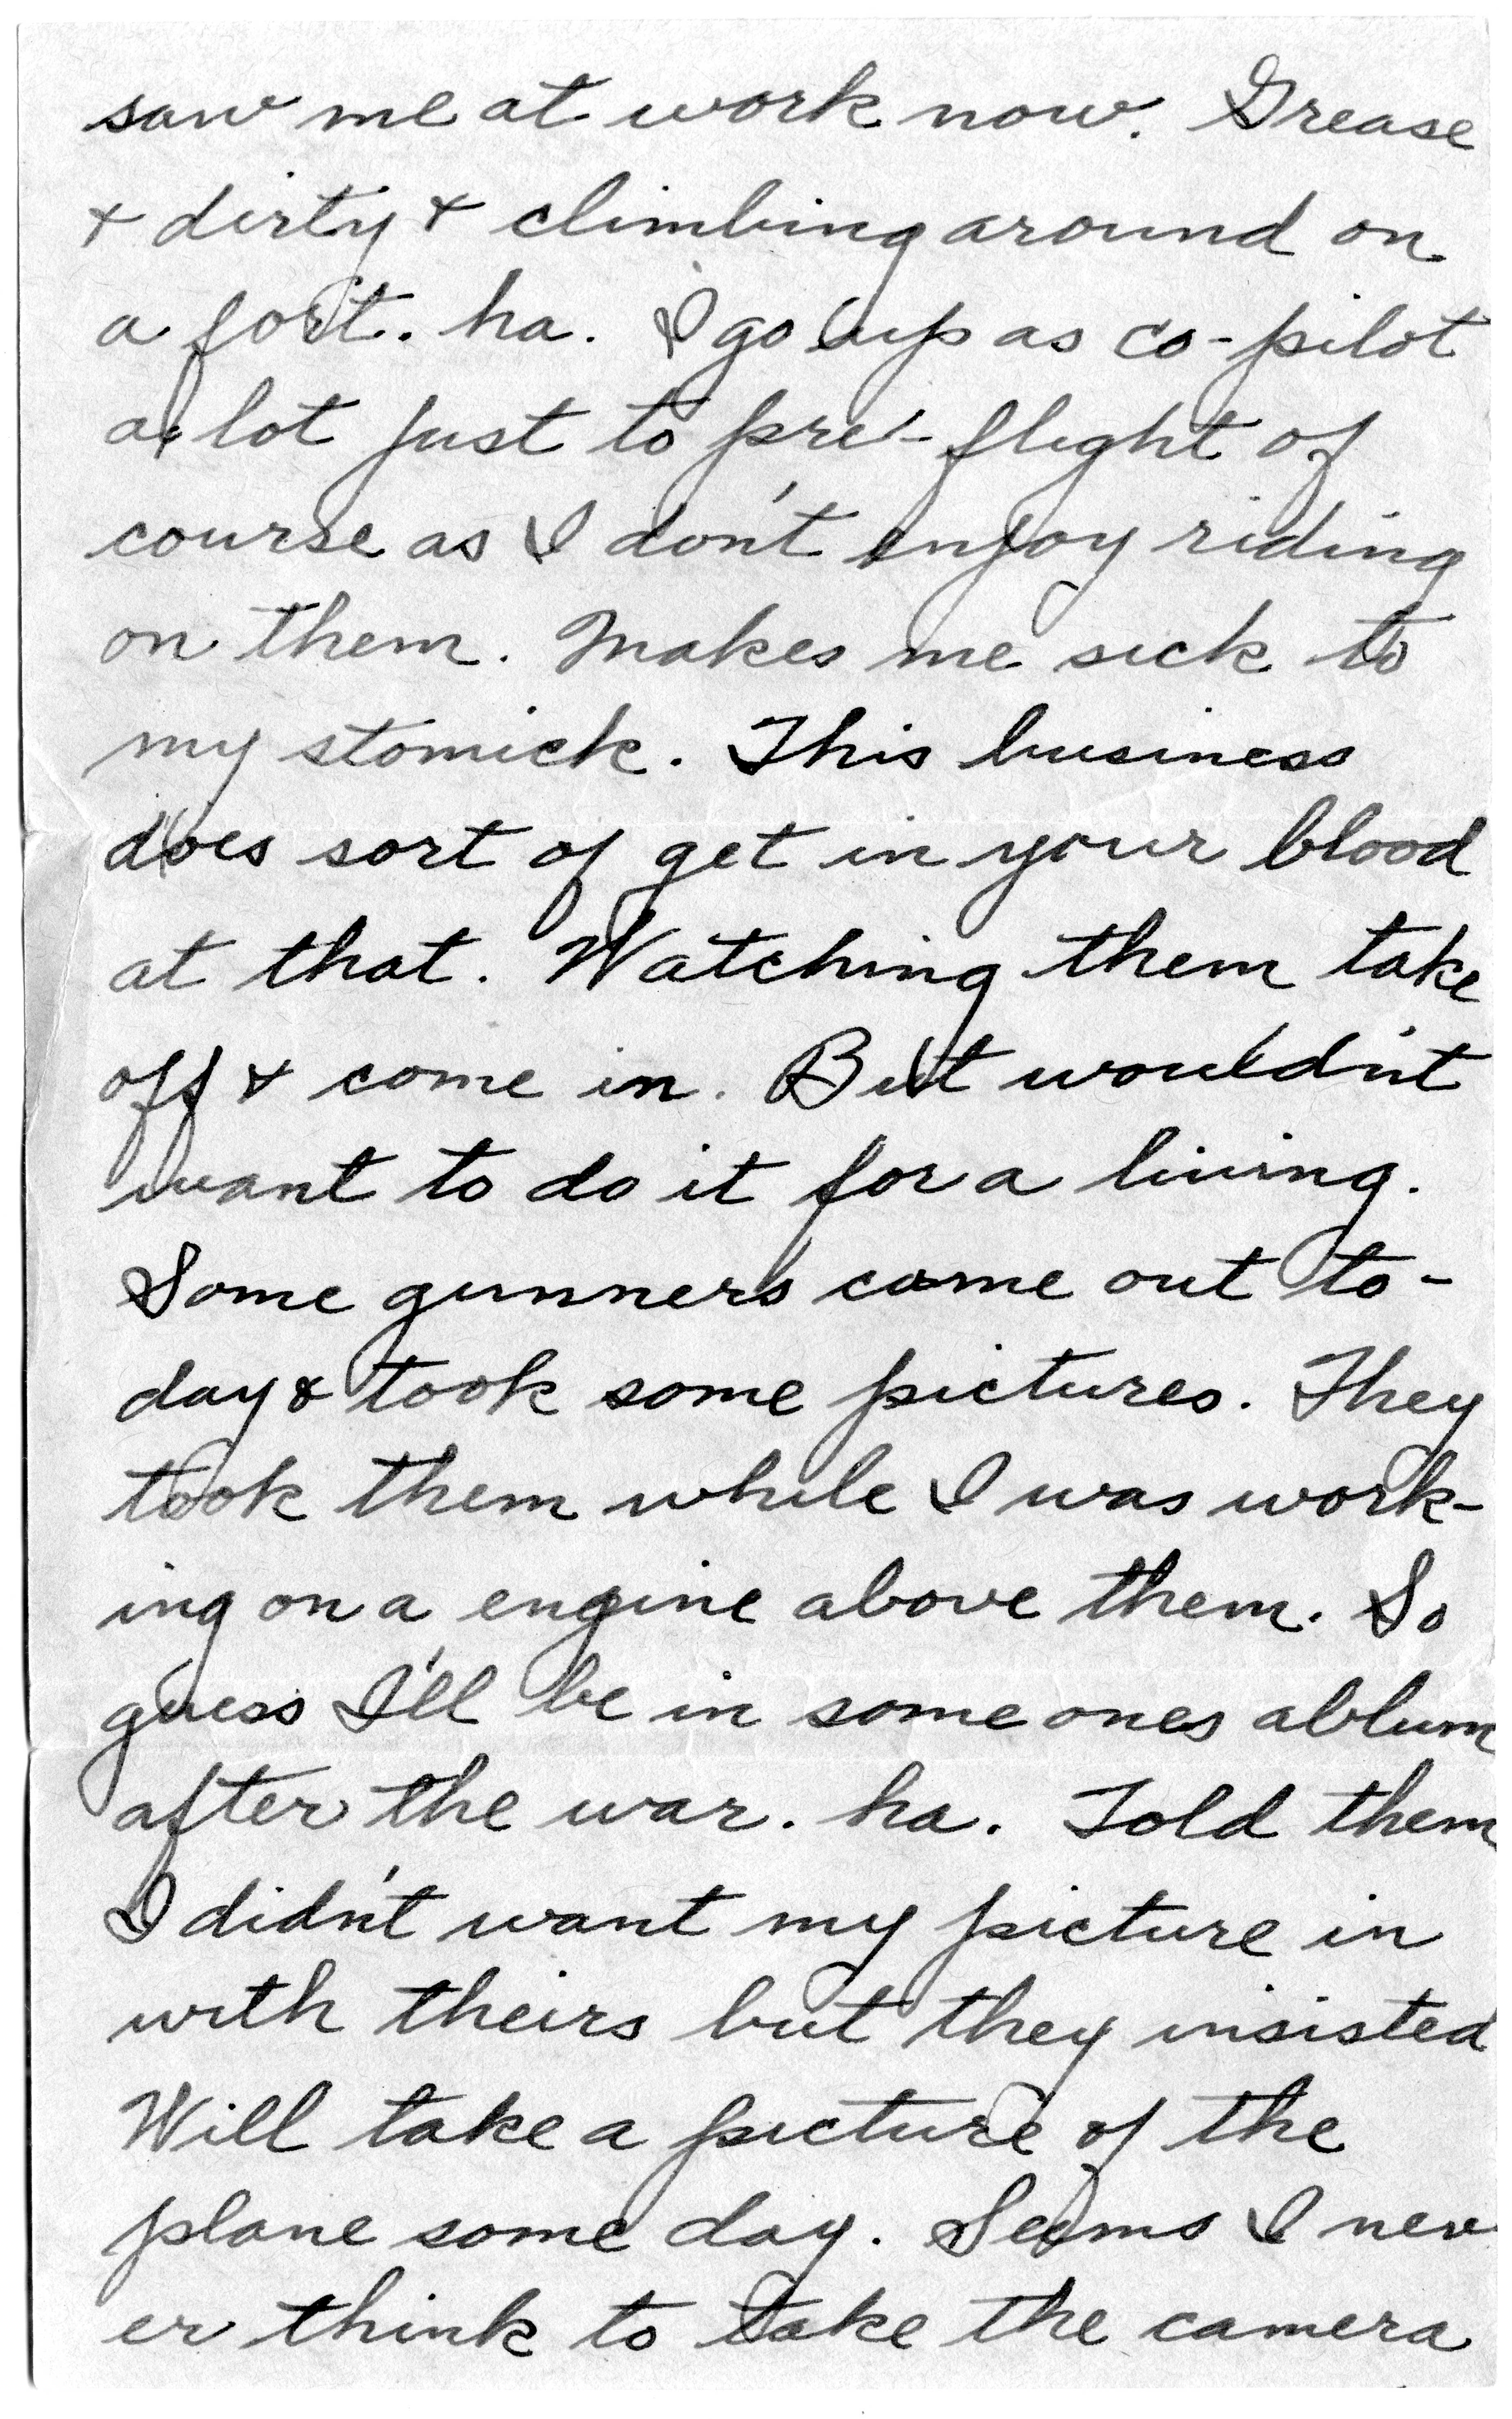 saw me at work now. Grease
& dirty & climbing around on
a fort. ha. I go up as co-pilot
a lot just to pre-flight of
course as I don't enjoy riding
on them. Makes me sick to
my stomick. This business
does sort of get in your blood
at that. Watching them take
off & come in. But wouldn't
want to do it for a living.
Some gunners came out to-
day & took some pictures. They
took them while I was work-
ing on a engine above them. So
guess I'll be in some ones ablum
after the war. ha. Told them
I didn't want my picture in
with theirs but they insisted
Will take a picture of the
plane some day. Seems I nev-
er think to take the camera